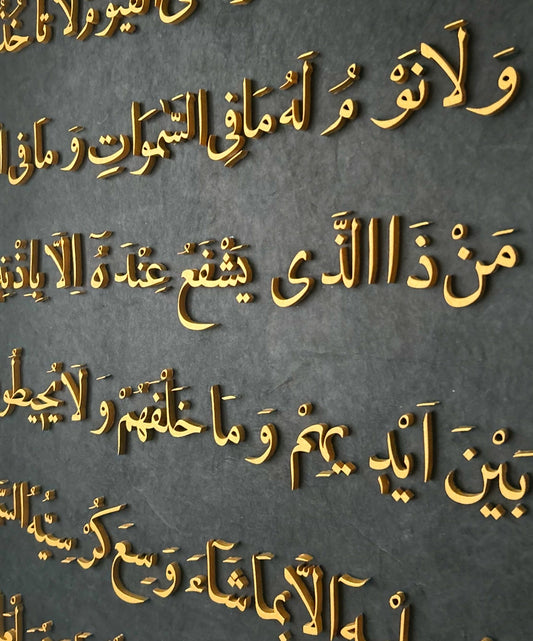 الْقَيُّومُ لَا تَأْخُذُ
وَلَا نَوْمٌ لَهُ مَا فِي السَّمٰوَاتِ وَمَا فِي
مَنْ ذَا الَّذِى يَشْفَعُ عِنْدَهُ اِلَّا بِاِذْنِهِ
بَيْنَ اَيْدِيهِمْ وَمَا خَلْفَهُمْ وَلَا يُحِيطُو
اِلَّا بِمَا شَاءَ وَسِعَ كُرْسِيُّهُ السَّ